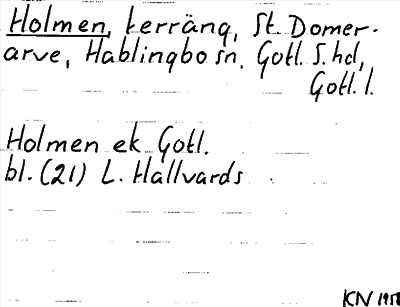 Holmen, terräng, St. Domer-
arve, Hablingbo sn, Gotl. S. hd,
Gotl. l.
Holmen ek Gotl.
bl. (21) L. Hallvards
KN 1958